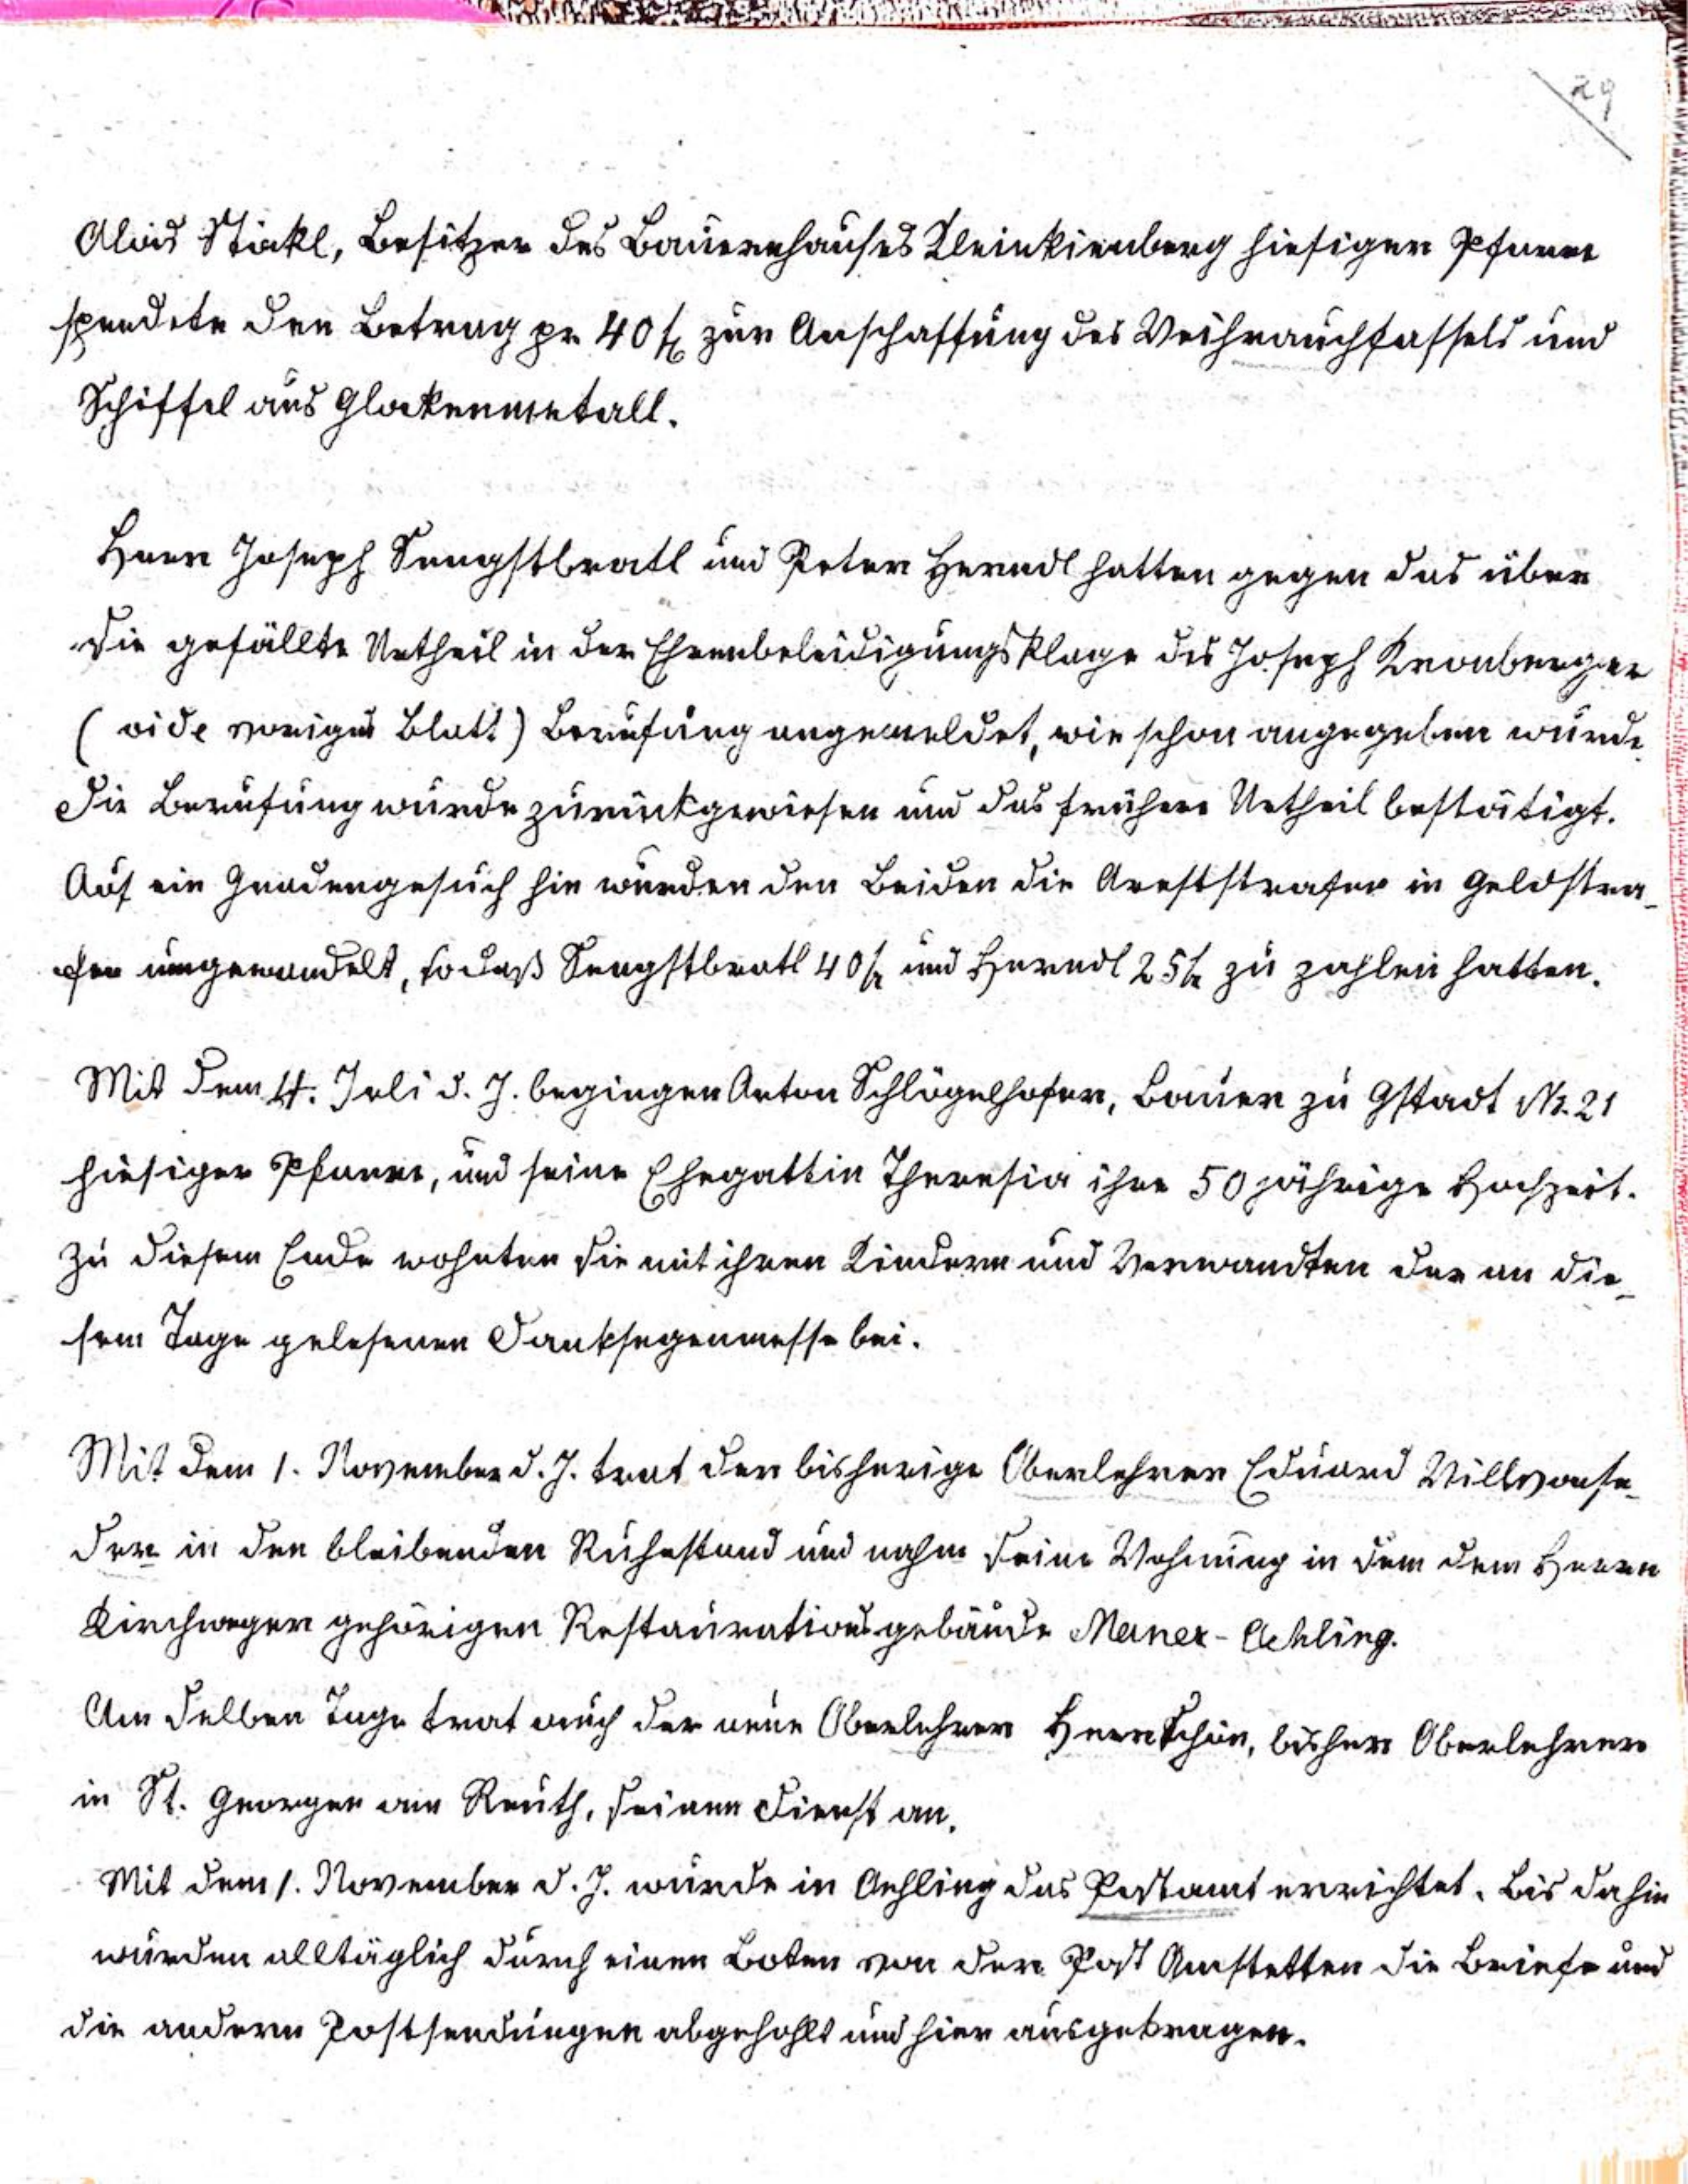 29
Alois Stöckl, Besitzer des Bauernhauses Kleinkienberg hiesiger Pfarre
spendete den Betrag pr 40 fl zur Anschaffung des Weihrauchfassels und
Schiffel aus Glockenmetall.
Herr Joseph Sengstbratl und Peter Herndl hatten gegen das über
sie gefällte Urtheil in der Ehrenbeleidigungsklage des Joseph Kronberger
(vide voriges Blatt) Berufung angemeldet, wie schon angegeben wurde.
Die Berufung wurde zurückgewiesen und das frühere Urtheil bestätigt.
Auf ein Gnadengesuch hin wurden den Beiden die Areststrafen in Geldstra-
fen umgewandelt, sodaß Sengstbratl 40 fl und Herndl 25 fl zu zahlen hatten.
Mit dem 4. Juli d. J. begingen Anton Schlögelhofer, Bauer zu Gstadt Nr. 21
hiesiger Pfarre, und seine Ehegattin Theresia ihre 50 jährige Hochzeit.
Zu diesem Ende wohnten sie mit ihren Kindern und Verwandten der an die-
sem Tage gelesenen Danksegenmesse bei.
Mit dem 1. November d. J. trat der bisherige Oberlehrer Eduard Willvonse-
der in den bleibenden Ruhestand und nahm seine Wohnung in dem dem Herrn
Kirchweger gehörigen Restaurationsgebäude Mauer-Oehling.
Am selben Tage trat auch der neue Oberlehrer Herr Schön, bisher Oberlehrer
in St. Georgen am Reuth, seinen Dienst an.
Mit dem 1. November d. J. wurde in Oehling das Postamt errichtet. Bis dahin
wurden alltäglich durch einen Boten von der Post Amstetten die Briefe und
die andern Postsendungen abgeholt und hier ausgetragen.